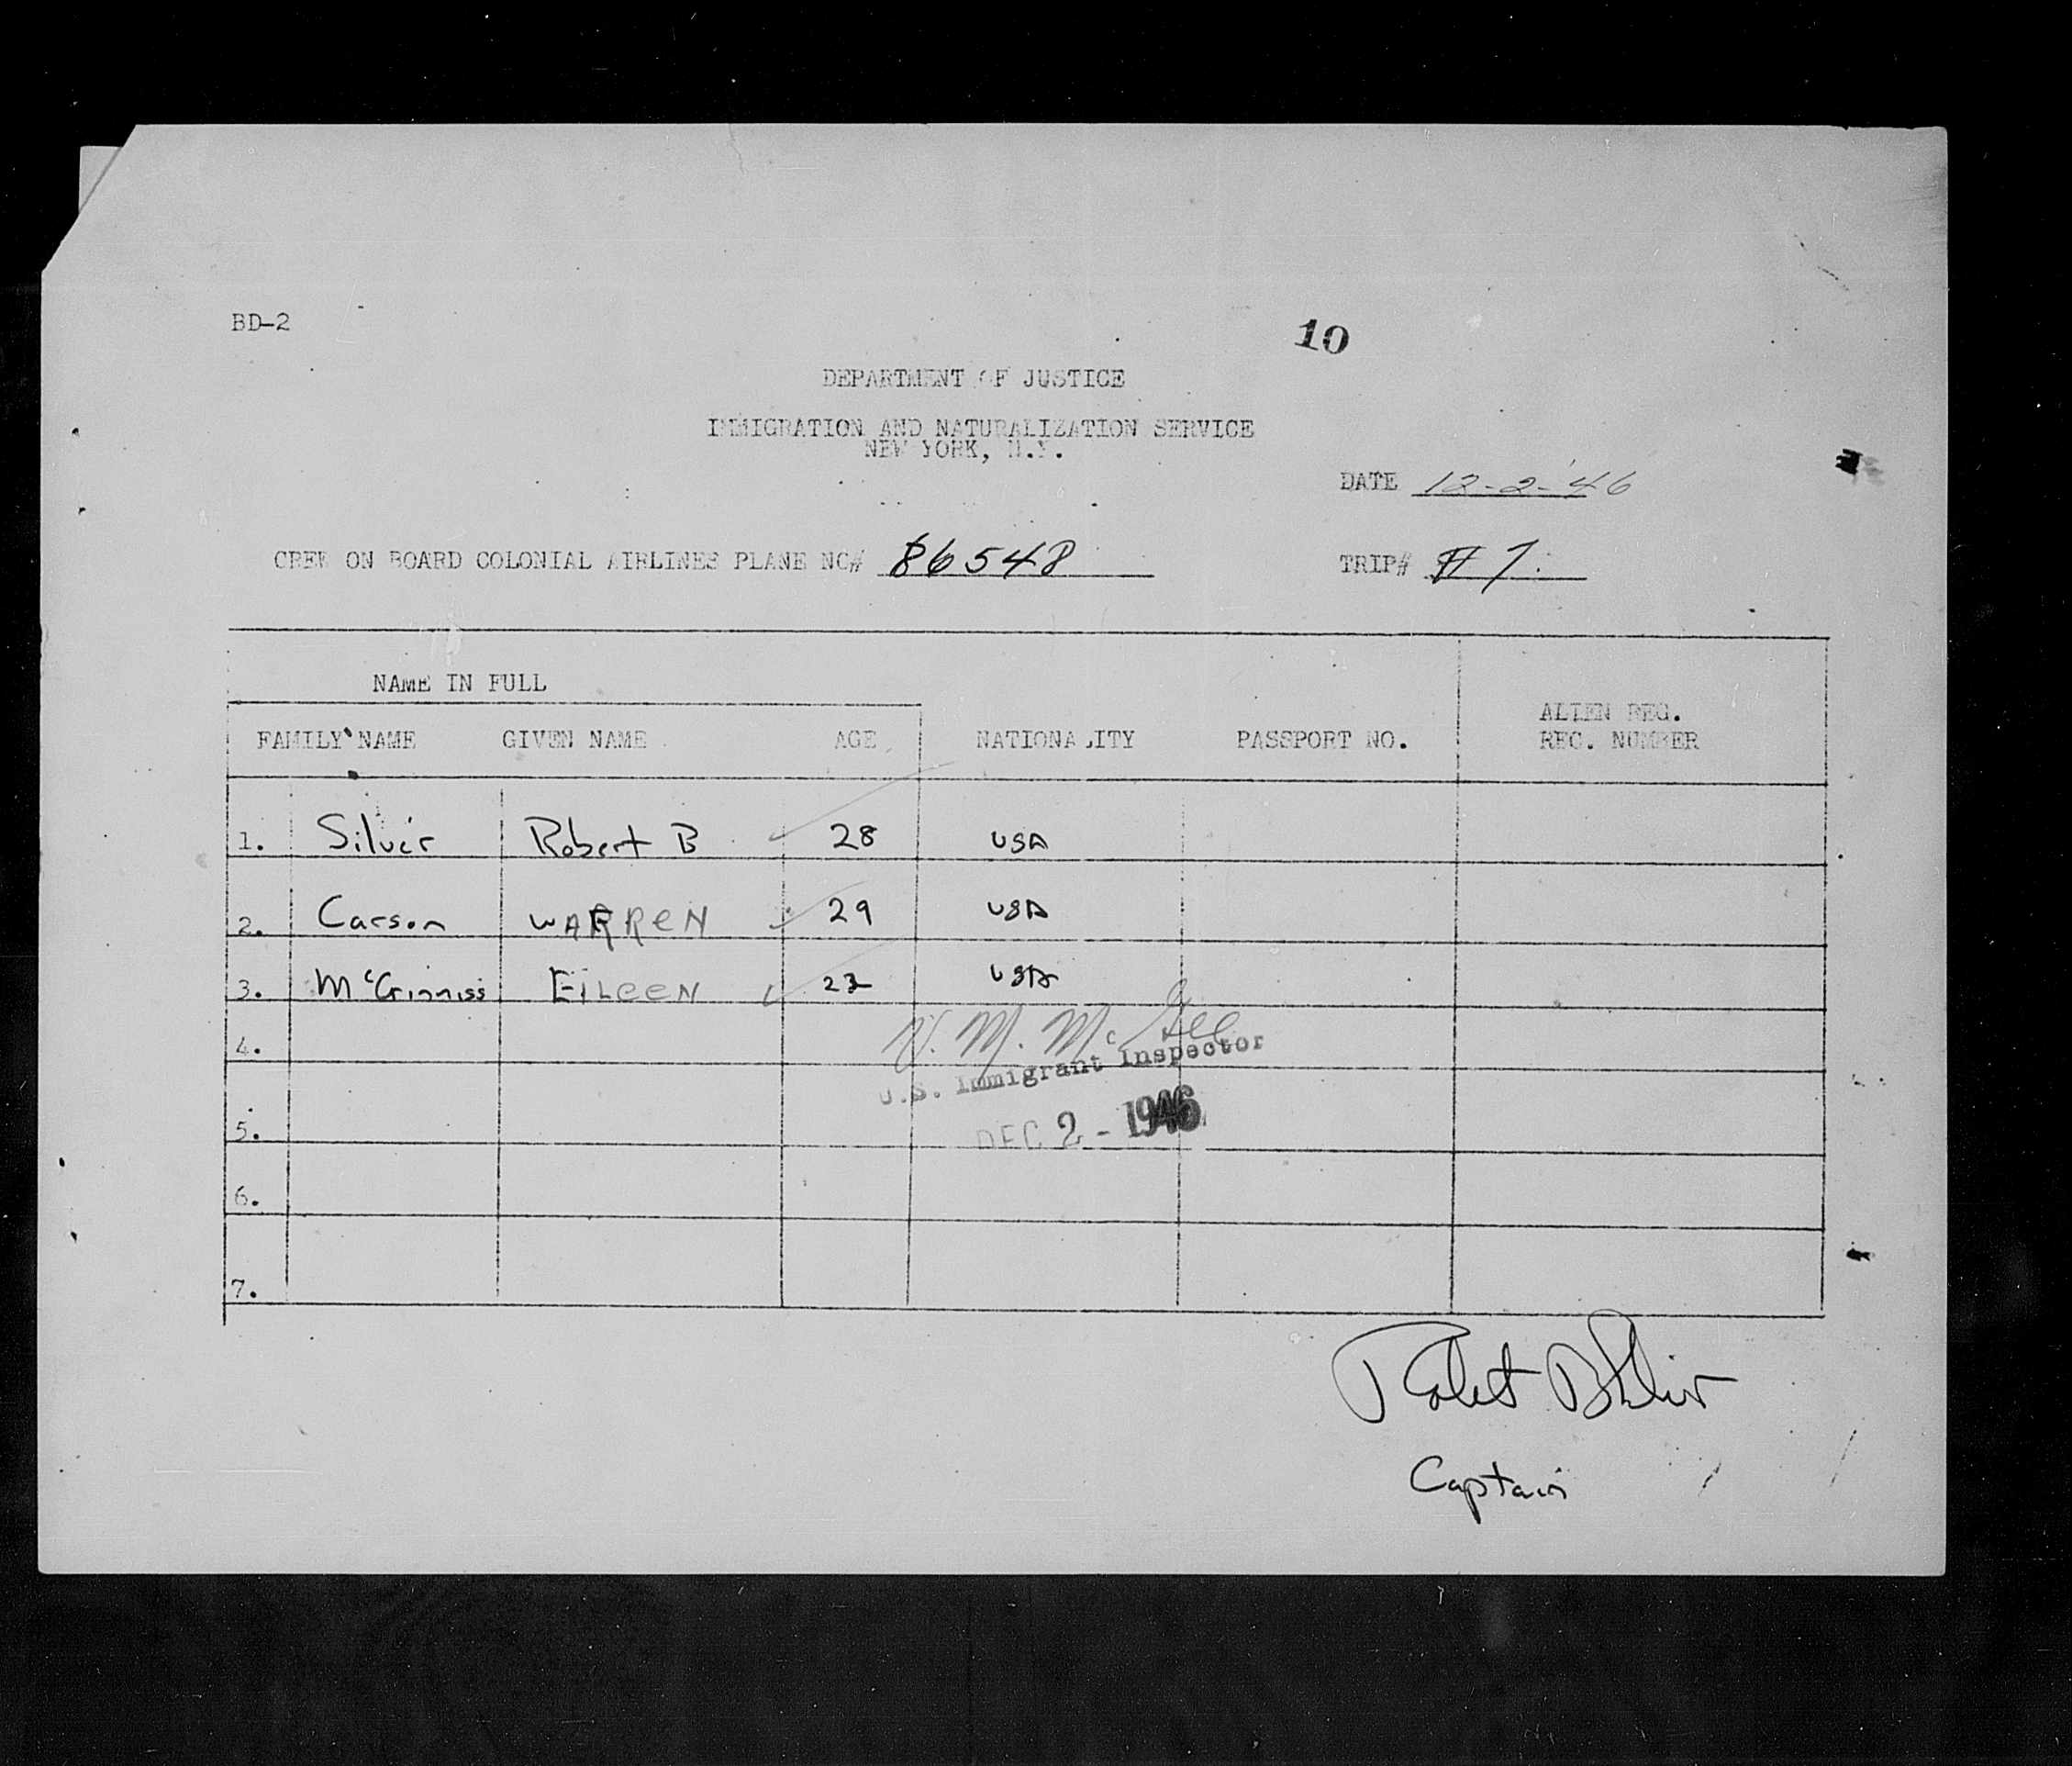 BD-2
10
DEPARTMENT OF JUSTICE
IMMIGRATION AND NATURALIZATION SERVICE
NEW YORK, N.Y.
DATE 12-2-'46
CREW ON BOARD COLONIAL AIRLINES PLANE NC# 86548 TRIP# #7
NAME IN FULL
FAMILY NAME GIVEN NAME AGE NATIONALITY PASSPORT NO. ALIEN REG.
REC. NUMBER
1. Silver Robert B 28 USA
2. Carson WARREN 29 USA
3. McGinniss EILEEN USA
4.
McGee
U.S. Immigrant Inspector
5.
DEC 2 - 1946
6.
7.
Robert B Silver
Captain